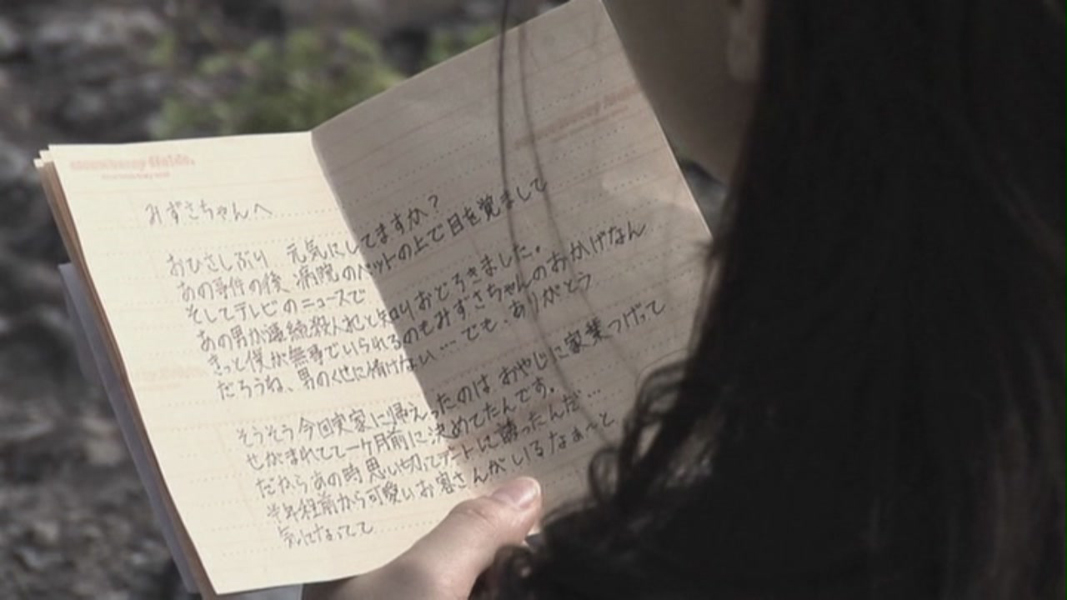 みずさちゃんへ
おひさしぶり 元気にしてますか?
あの事件の後 病院のベットの上で目を覚まして
そしてテレビのニュースで
あの男が連続殺人犯と知りおどろきました。
きっと僕が無事でいられるのもみずさちゃんのおかげなん
だろうね、男のくせに情けない… でも、ありがとう
そうそう今回実家に帰えったのは おやじに家業つげって
せがまれてて一ヶ月前に決めてたんです。
だからあの時思い切ってデートに誘ったんだ…
半年程前から可愛いお客さんがいるなぁ〜と
気になってて